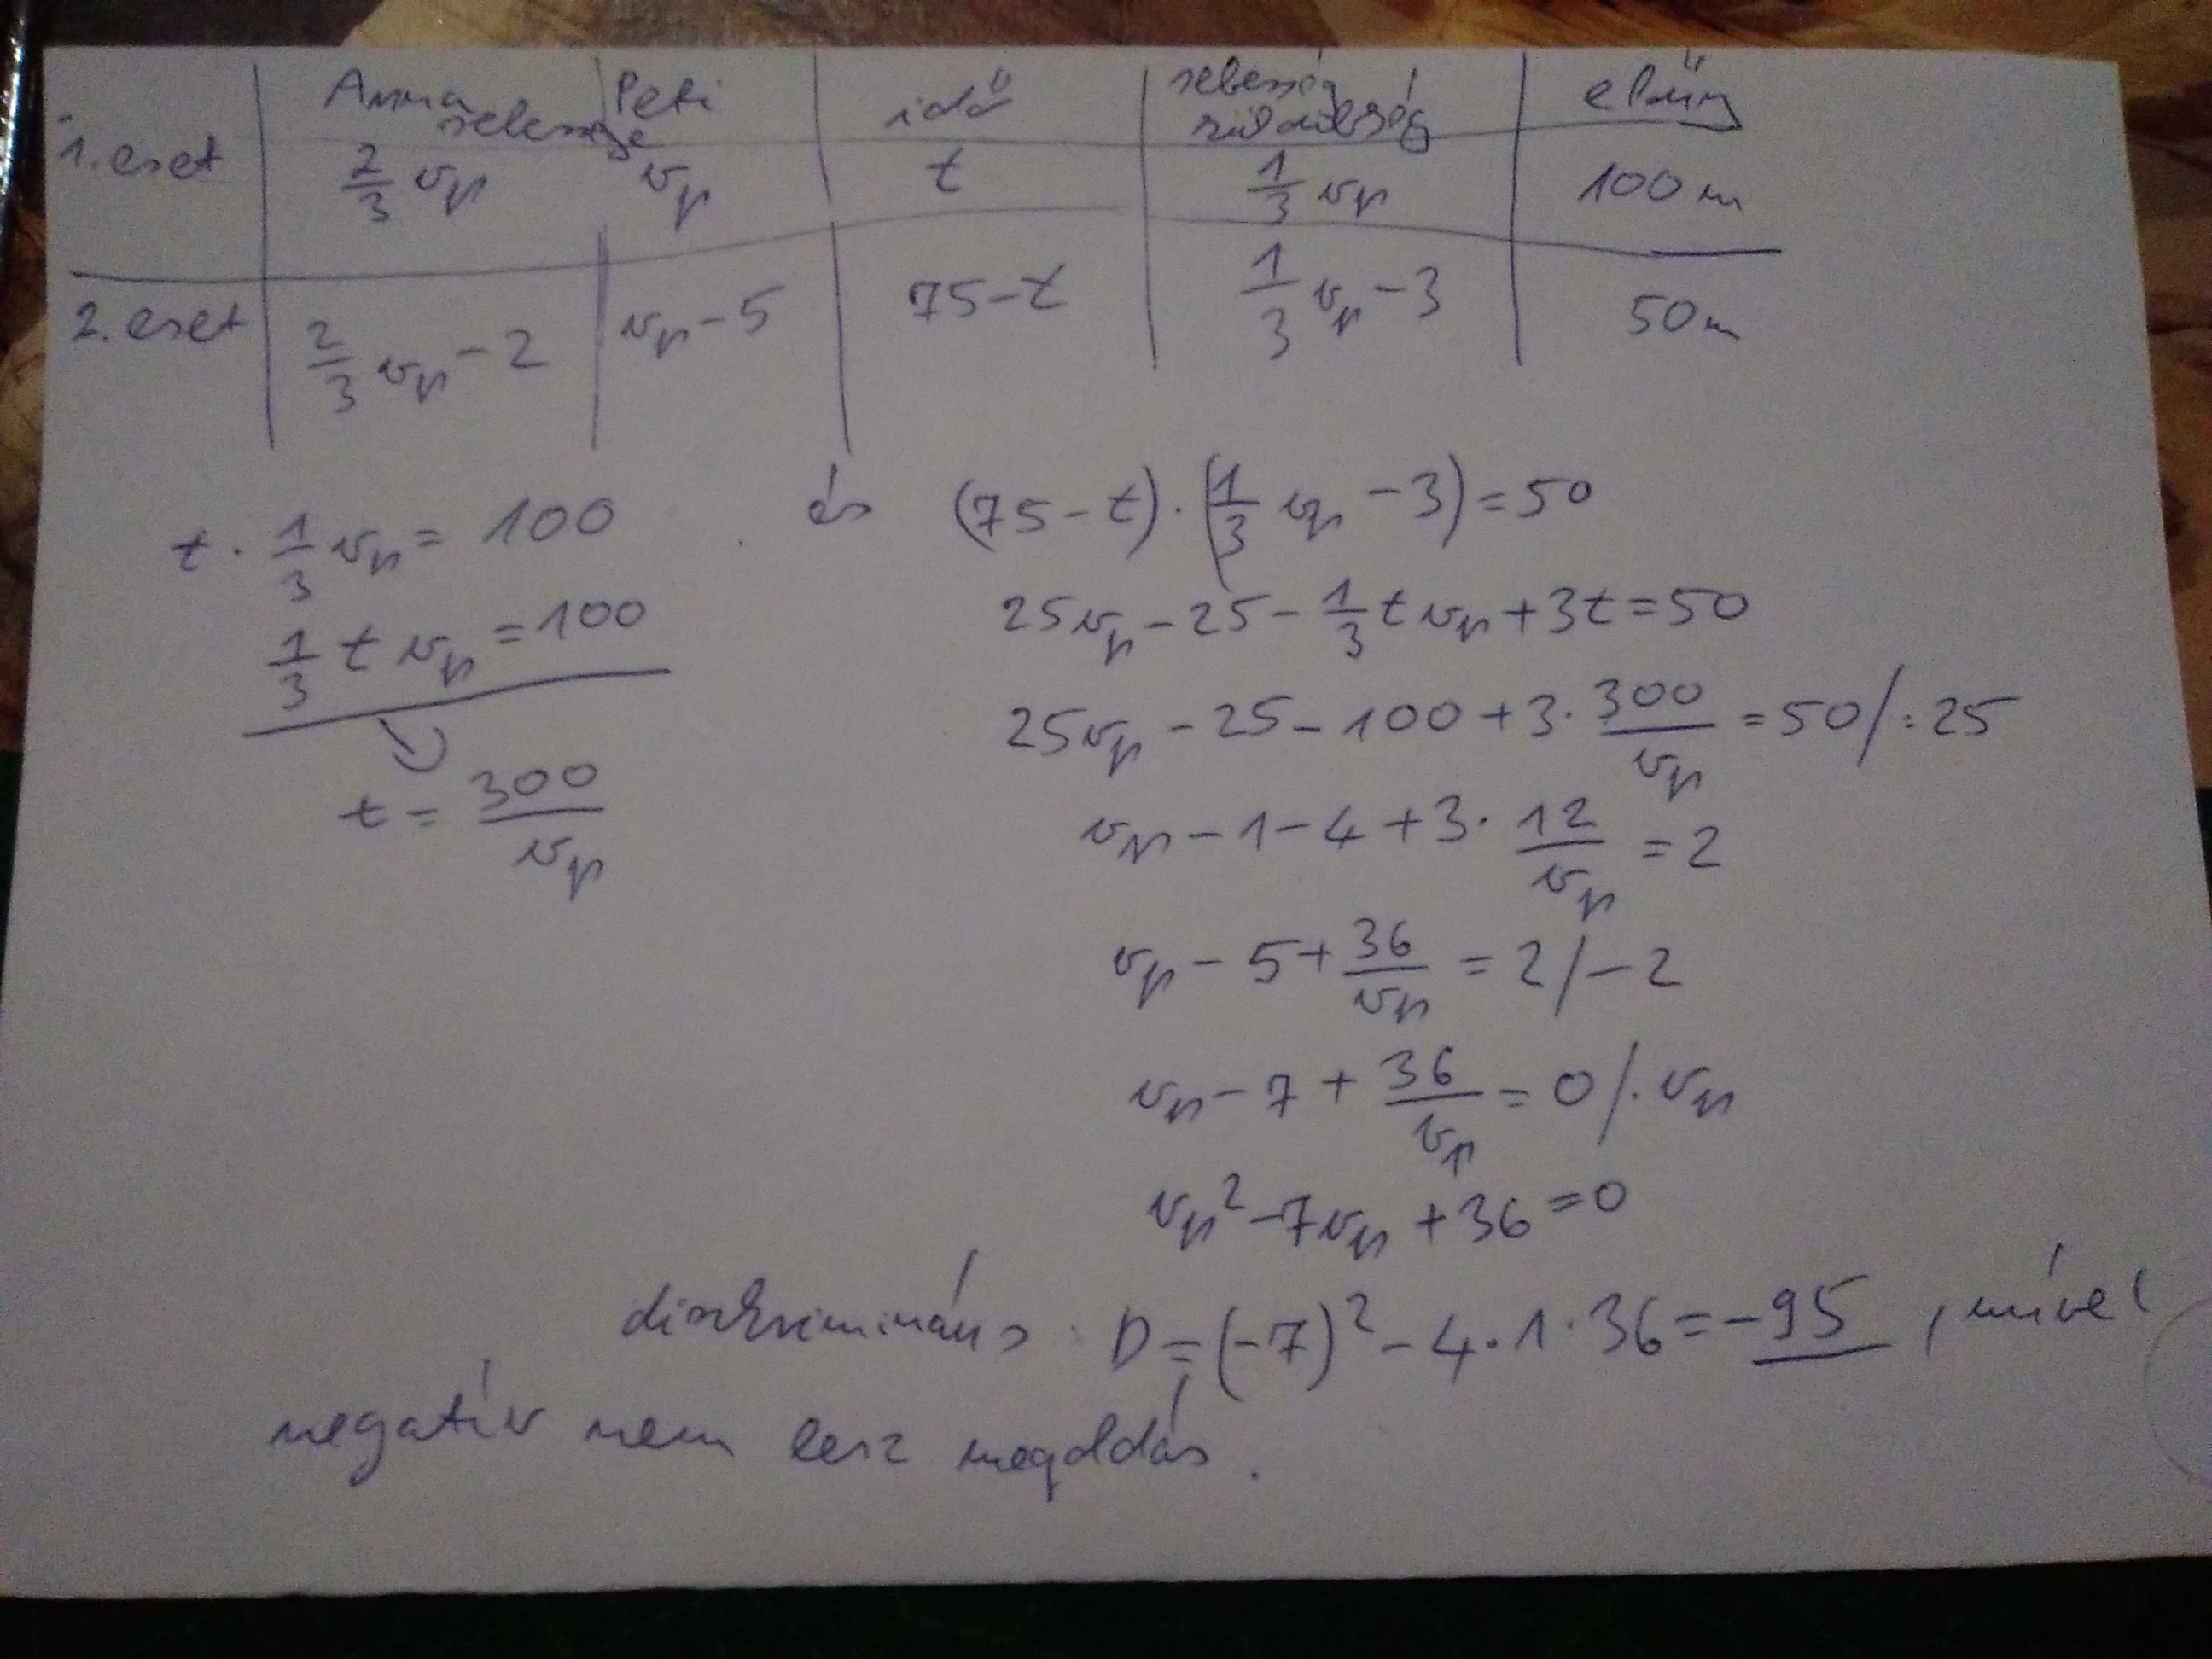 Anna sebessége Peti idő sebesség különbség előny
1. eset 2/3 vp vp t 1/3 vp 100 m
2. eset 2/3 vp - 2 vp - 5 75 - t 1/3 vp - 3 50 m
t · 1/3 vp = 100 és (75 - t) · (1/3 vp - 3) = 50
1/3 t vp = 100 25vp - 25 - 1/3 t vp + 3t = 50
t = 300/vp 25vp - 25 - 100 + 3 · 300/vp = 50 / : 25
vp - 1 - 4 + 3 · 12/vp = 2
vp - 5 + 36/vp = 2 / - 2
vp - 7 + 36/vp = 0 / · vp
vp² - 7vp + 36 = 0
diszkrimináns D = (-7)² - 4 · 1 · 36 = -95, mivel
negatív nem lesz megoldás.